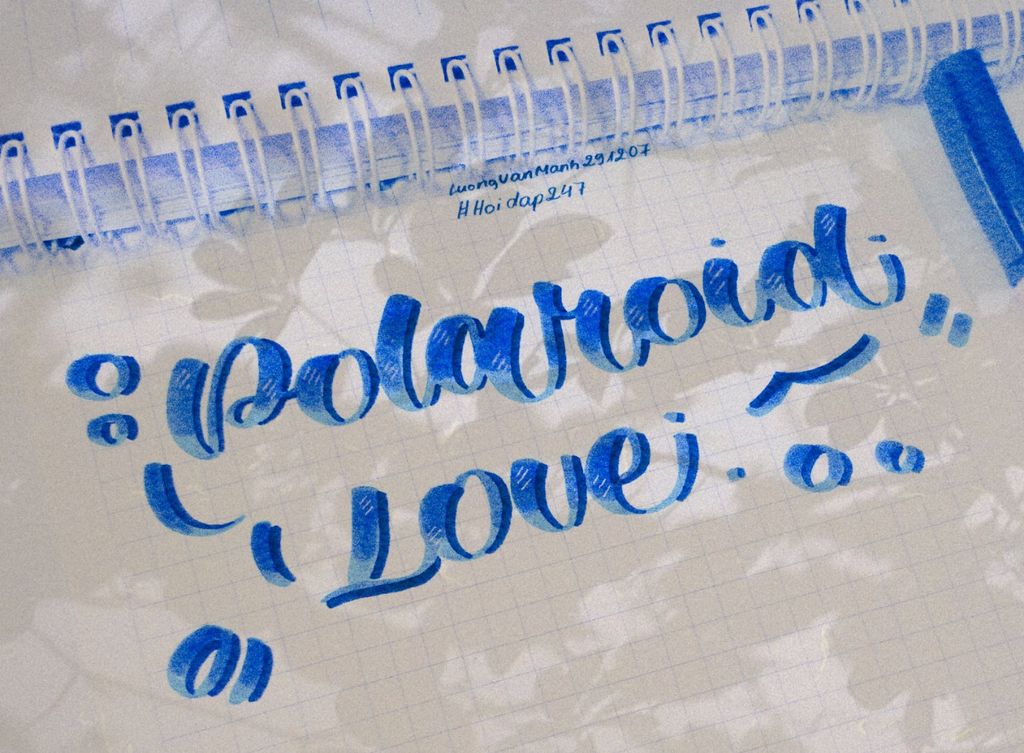 LuongVanManh291207
#Hoidap247
Polaroid
Love